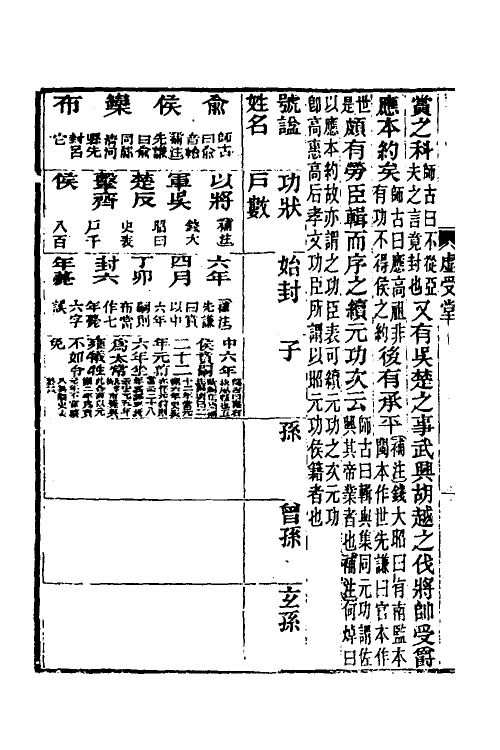 虛受堂
賞之科師古曰不從亞夫之言竟封也又有吳楚之事武興胡越之伐將帥受爵
應本約矣師古曰應高祖非有功不得侯之約後有承平補注錢大昭曰有南監本閩本作世先謙曰官本作
世是頗有勞臣輯而序之續元功次云師古曰輯與集同元功謂佐興其帝業者也補注何焯曰
以應本約故亦謂之功臣表可續元功之次元功
即高惠高后孝文功臣所謂以昭元功侯籍者也
號諡姓名
功狀戶數
始封
子
孫
曾孫
玄孫
俞侯欒布
師古曰俞音輸補注先謙曰俞同鄃清河縣先封呂它
以將軍吳楚反擊齊侯
補注錢大昭曰史表戶千八百
六年四月丁卯封六年薨
補注先謙曰賁以中六年嗣則布當作七年薨六字誤
中六年侯賁嗣二十二年元狩六年坐為太常雍犧牲不如令免